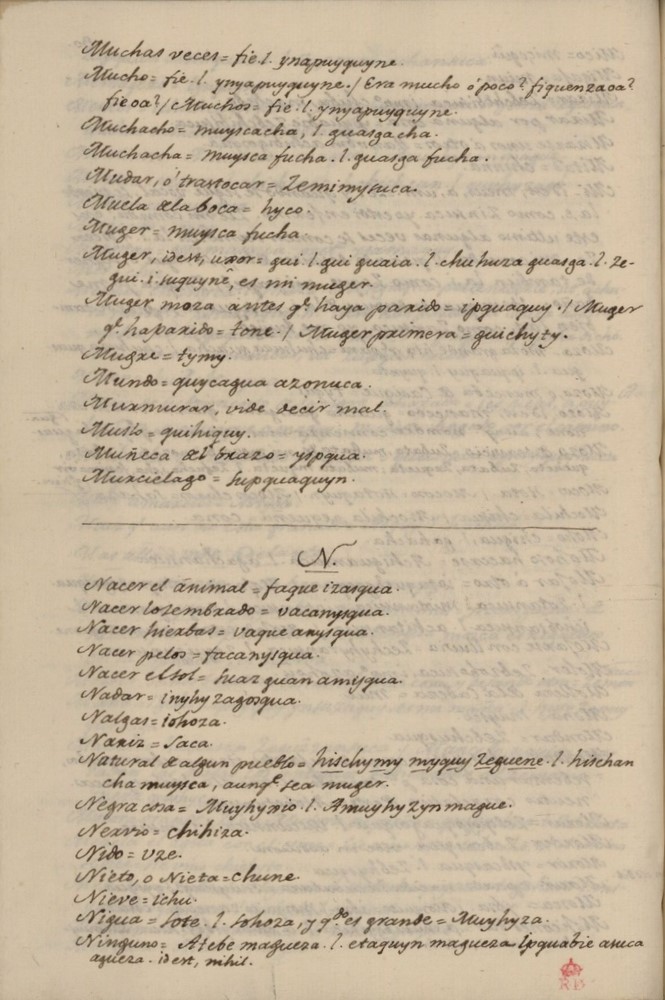 Muchas veces = fie. l. ynapuyquyne.
Mucho = fie. l. ynyapuyquyne. / Era mucho ó poco? fiquenzaoa?
fieoa? / Muchos = fie. l. ynyapuyquyne.
Muchacho = muyscacha, l. guasgacha.
Muchacha = muysca fucha. l. guasga fucha.
Mudar, ó trastocar = Zemimysuca.
Muela de la boca = hyco.
Muger = muysca fucha.
Muger, id est, uxor = gui. l. gui guaia. l. chuhuza guasga. l. ze-
gui. i. suguynê, es mi muger.
Muger moza antes q.e haya parido = ipguaguy. / Muger
q.e ha parido = tone. / Muger primera = guichyty.
Mugre = tymy.
Mundo = quycagua azonuca.
Murmurar, vide decir mal.
Muslo = quihiguy.
Muñeca del brazo = yspqua.
Murcielago = supquaguyn.
N.
Nacer el ánimal = faque izasqua.
Nacer lo sembrado = vacanysqua.
Nacer hierbas = vaque anysqua.
Nacer pelos = facanysqua.
Nacer el sol = suaz guan amisqua.
Nadar = inyhy zagosqua.
Nalgas = iohoza.
Nariz = saca.
Natural de algun pueblo = hischymy myquy zeguene. l. hischan
cha muysca, aunq.e sea muger.
Negra cosa = Muyhyxio. l. Amuyhyzyn mague.
Nervio = chihiza.
Nido = uze.
Nieto, o Nieta = chune.
Nieve = ichu.
Nigua = sote. l. sohoza, y q.do es grande = Muyhyza.
Ninguno = Atebe magueza. l. etaquyn magueza ipquabie asuca
agueza. id est, nihil.